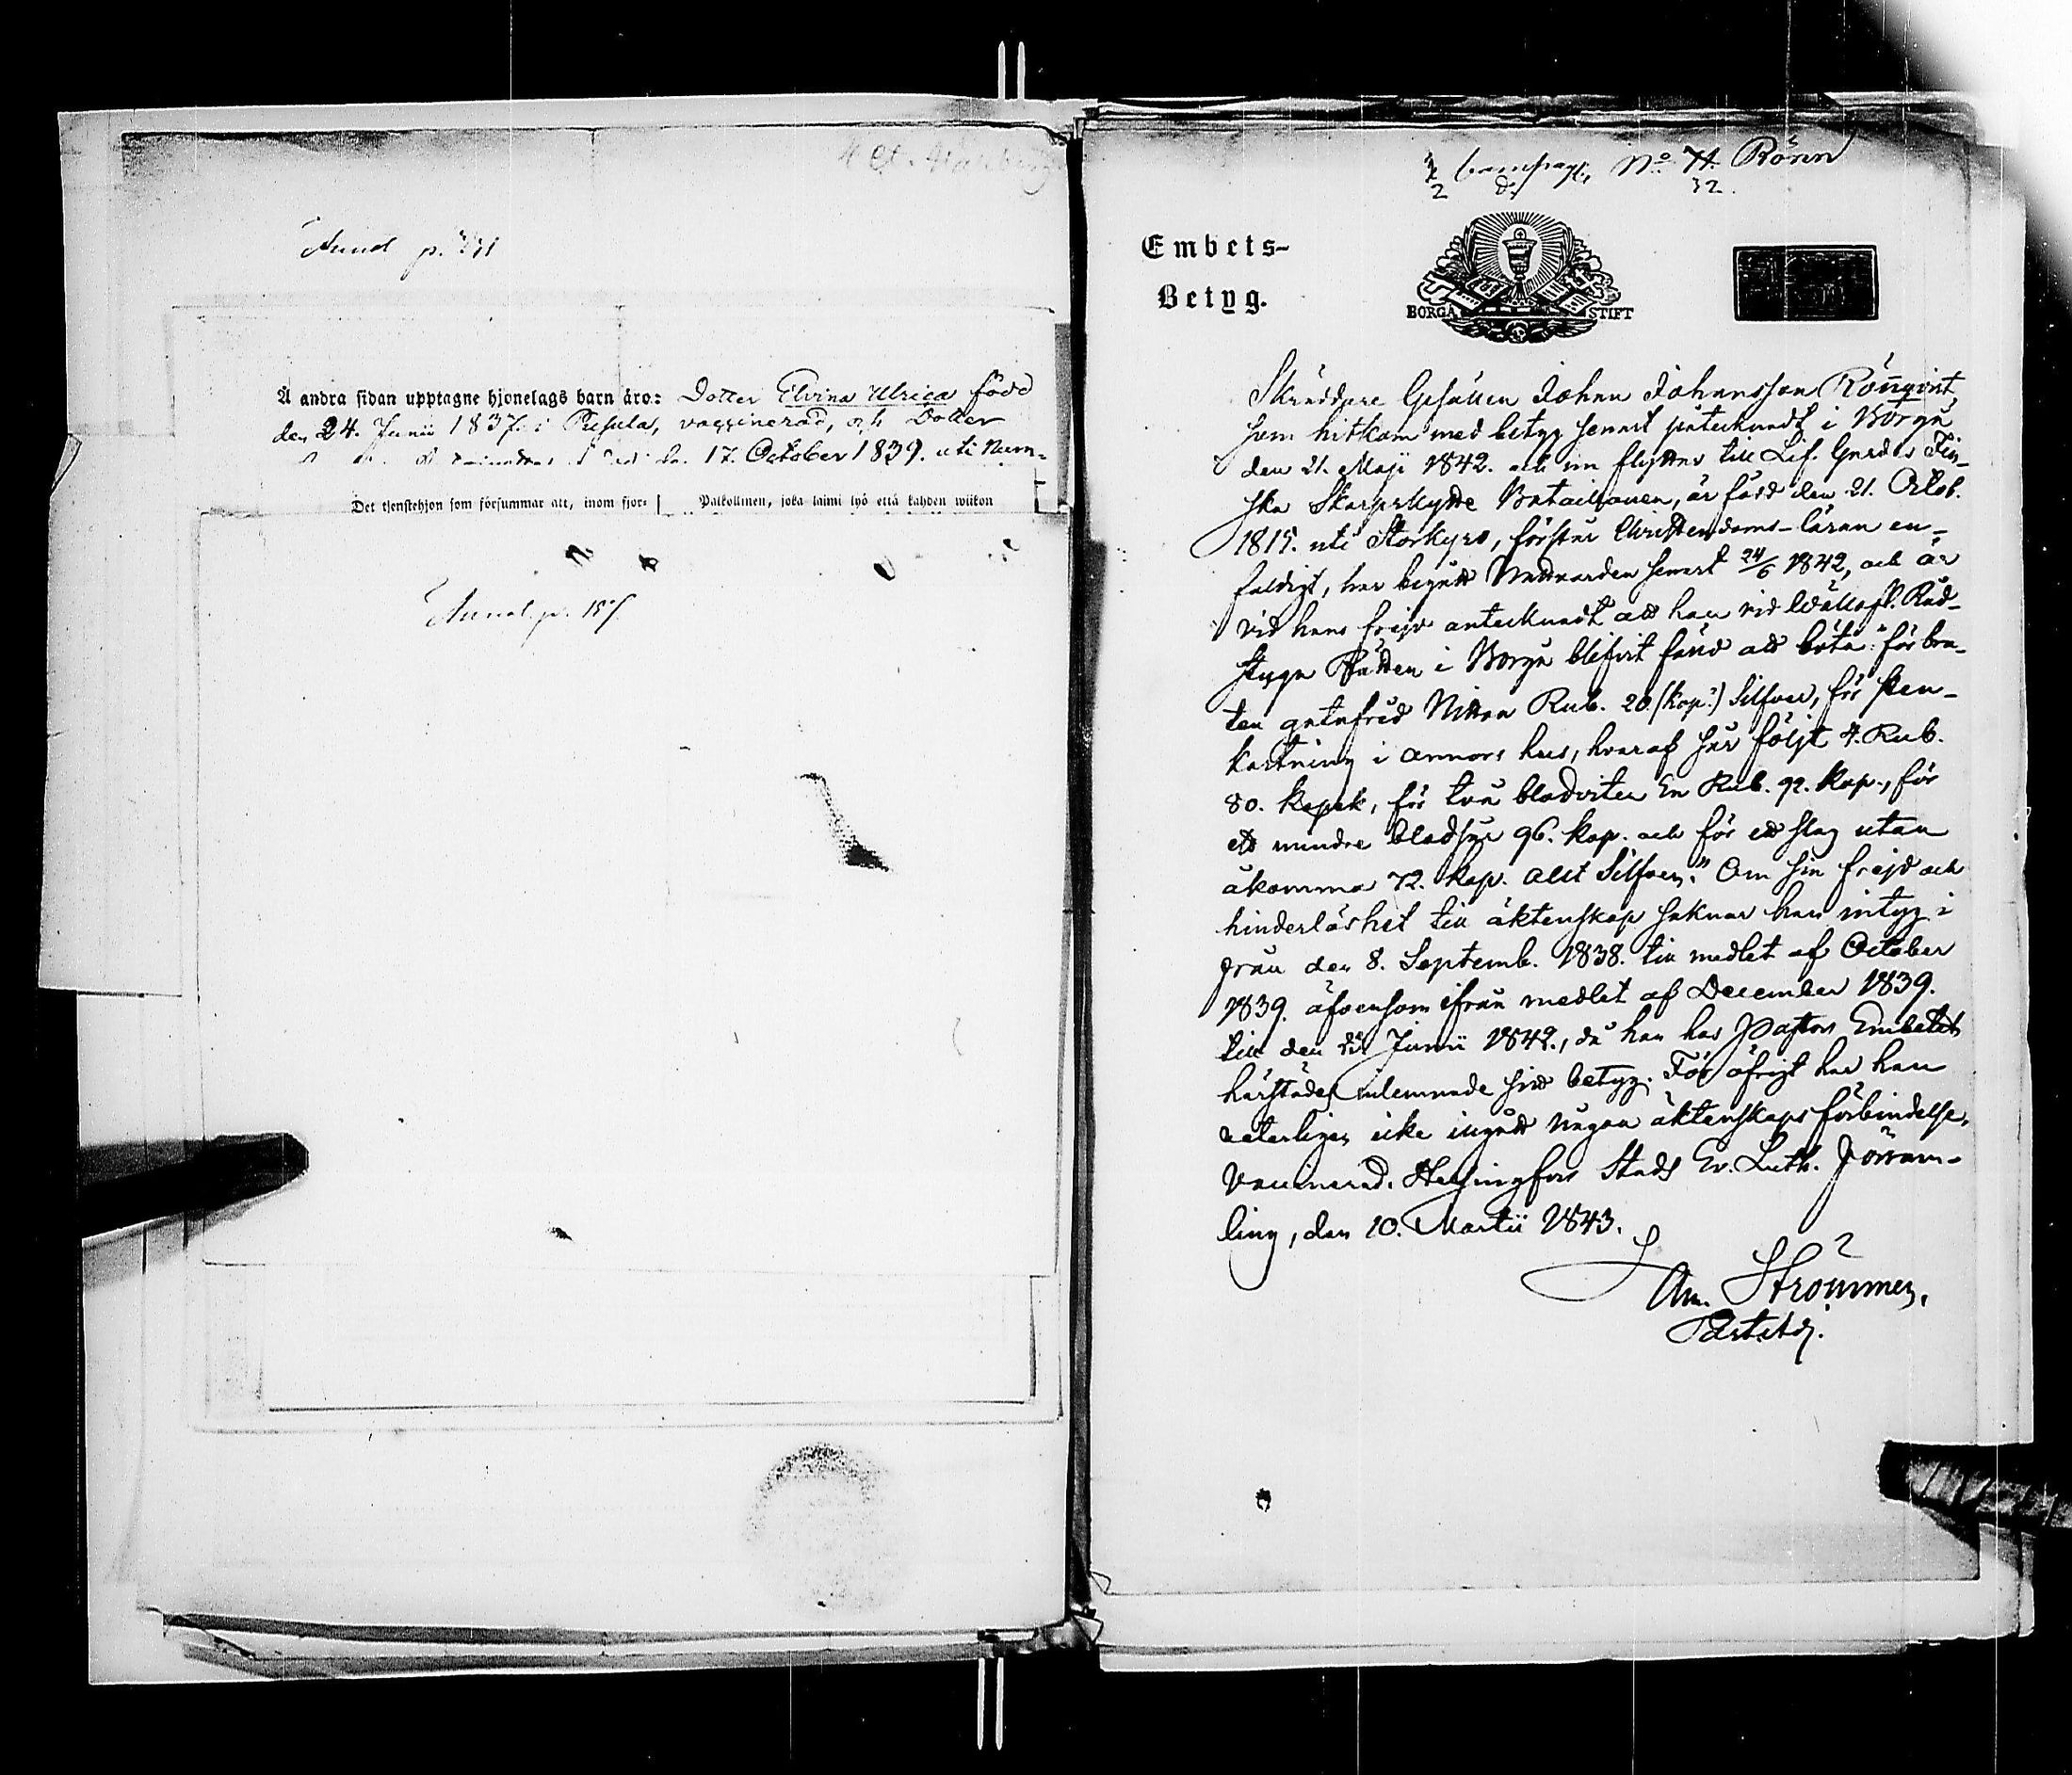 Anmäl p. 
Å andra sidan upptagne hjonelags barn äro: Dotter Elvina Ulrica född
den 24. Junii 1837. i Pusula, vaccinerad, och Dotter
17. October 1839. uti Num-
Det tjenstehjon som försummar att, inom fjor-
Palkollinen, joka laimi lyö että kahden wiikon
Anmäl. p. 157.
2 Compagn. No 71. Rönn
32.
Embets-
Betyg.
BORGÅ STIFT
Skräddare Gesällen Johan Johansson Rönnqvist,
som hitkom med betyg senast påtecknadt i Borgå
den 21. Maji 1842. och nu flyttar till Lif-Gardes Fin-
ska Skarpskytte Bataillonen, är född den 21. Octob.
1815. uti Storkyro, förstår Christendoms-läran en-
faldigt, har begått Nattvarden senast 24/6 1842, och är
vid hans frejd antecknadt att han vid Wällofl. Råd-
stugu Rätten i Borgå blifvit fälld att böta: "för bru-
ten gatufrid Rub. 20. (kop.) Silfver, för sten-
kastning i annors hus, hvaraf sår följt 4. Rub.
80. kopek, för två blodviten En Rub. 92. kop., för
ett mindre blodsår 96. kop. och för ett slag utan
åkomma 72. kop. allt Silfver." Om sin frejd och
hinderlöshet till äktenskap saknar han intyg i
från den 8. Septemb. 1838. till medlet af October
1839. äfvensom ifrån medlet af December 1839.
till den Junii 1842., då han hos Pastors Embetet
härstädes inlemnade sitt betyg. För öfrigt har han
veterligen icke ingått någon äktenskaps förbindelse.
Vaccinerad. Helsingfors Stads Ev. Luth. Försam-
ling, den 10. Martii 1843.
Strömmer,